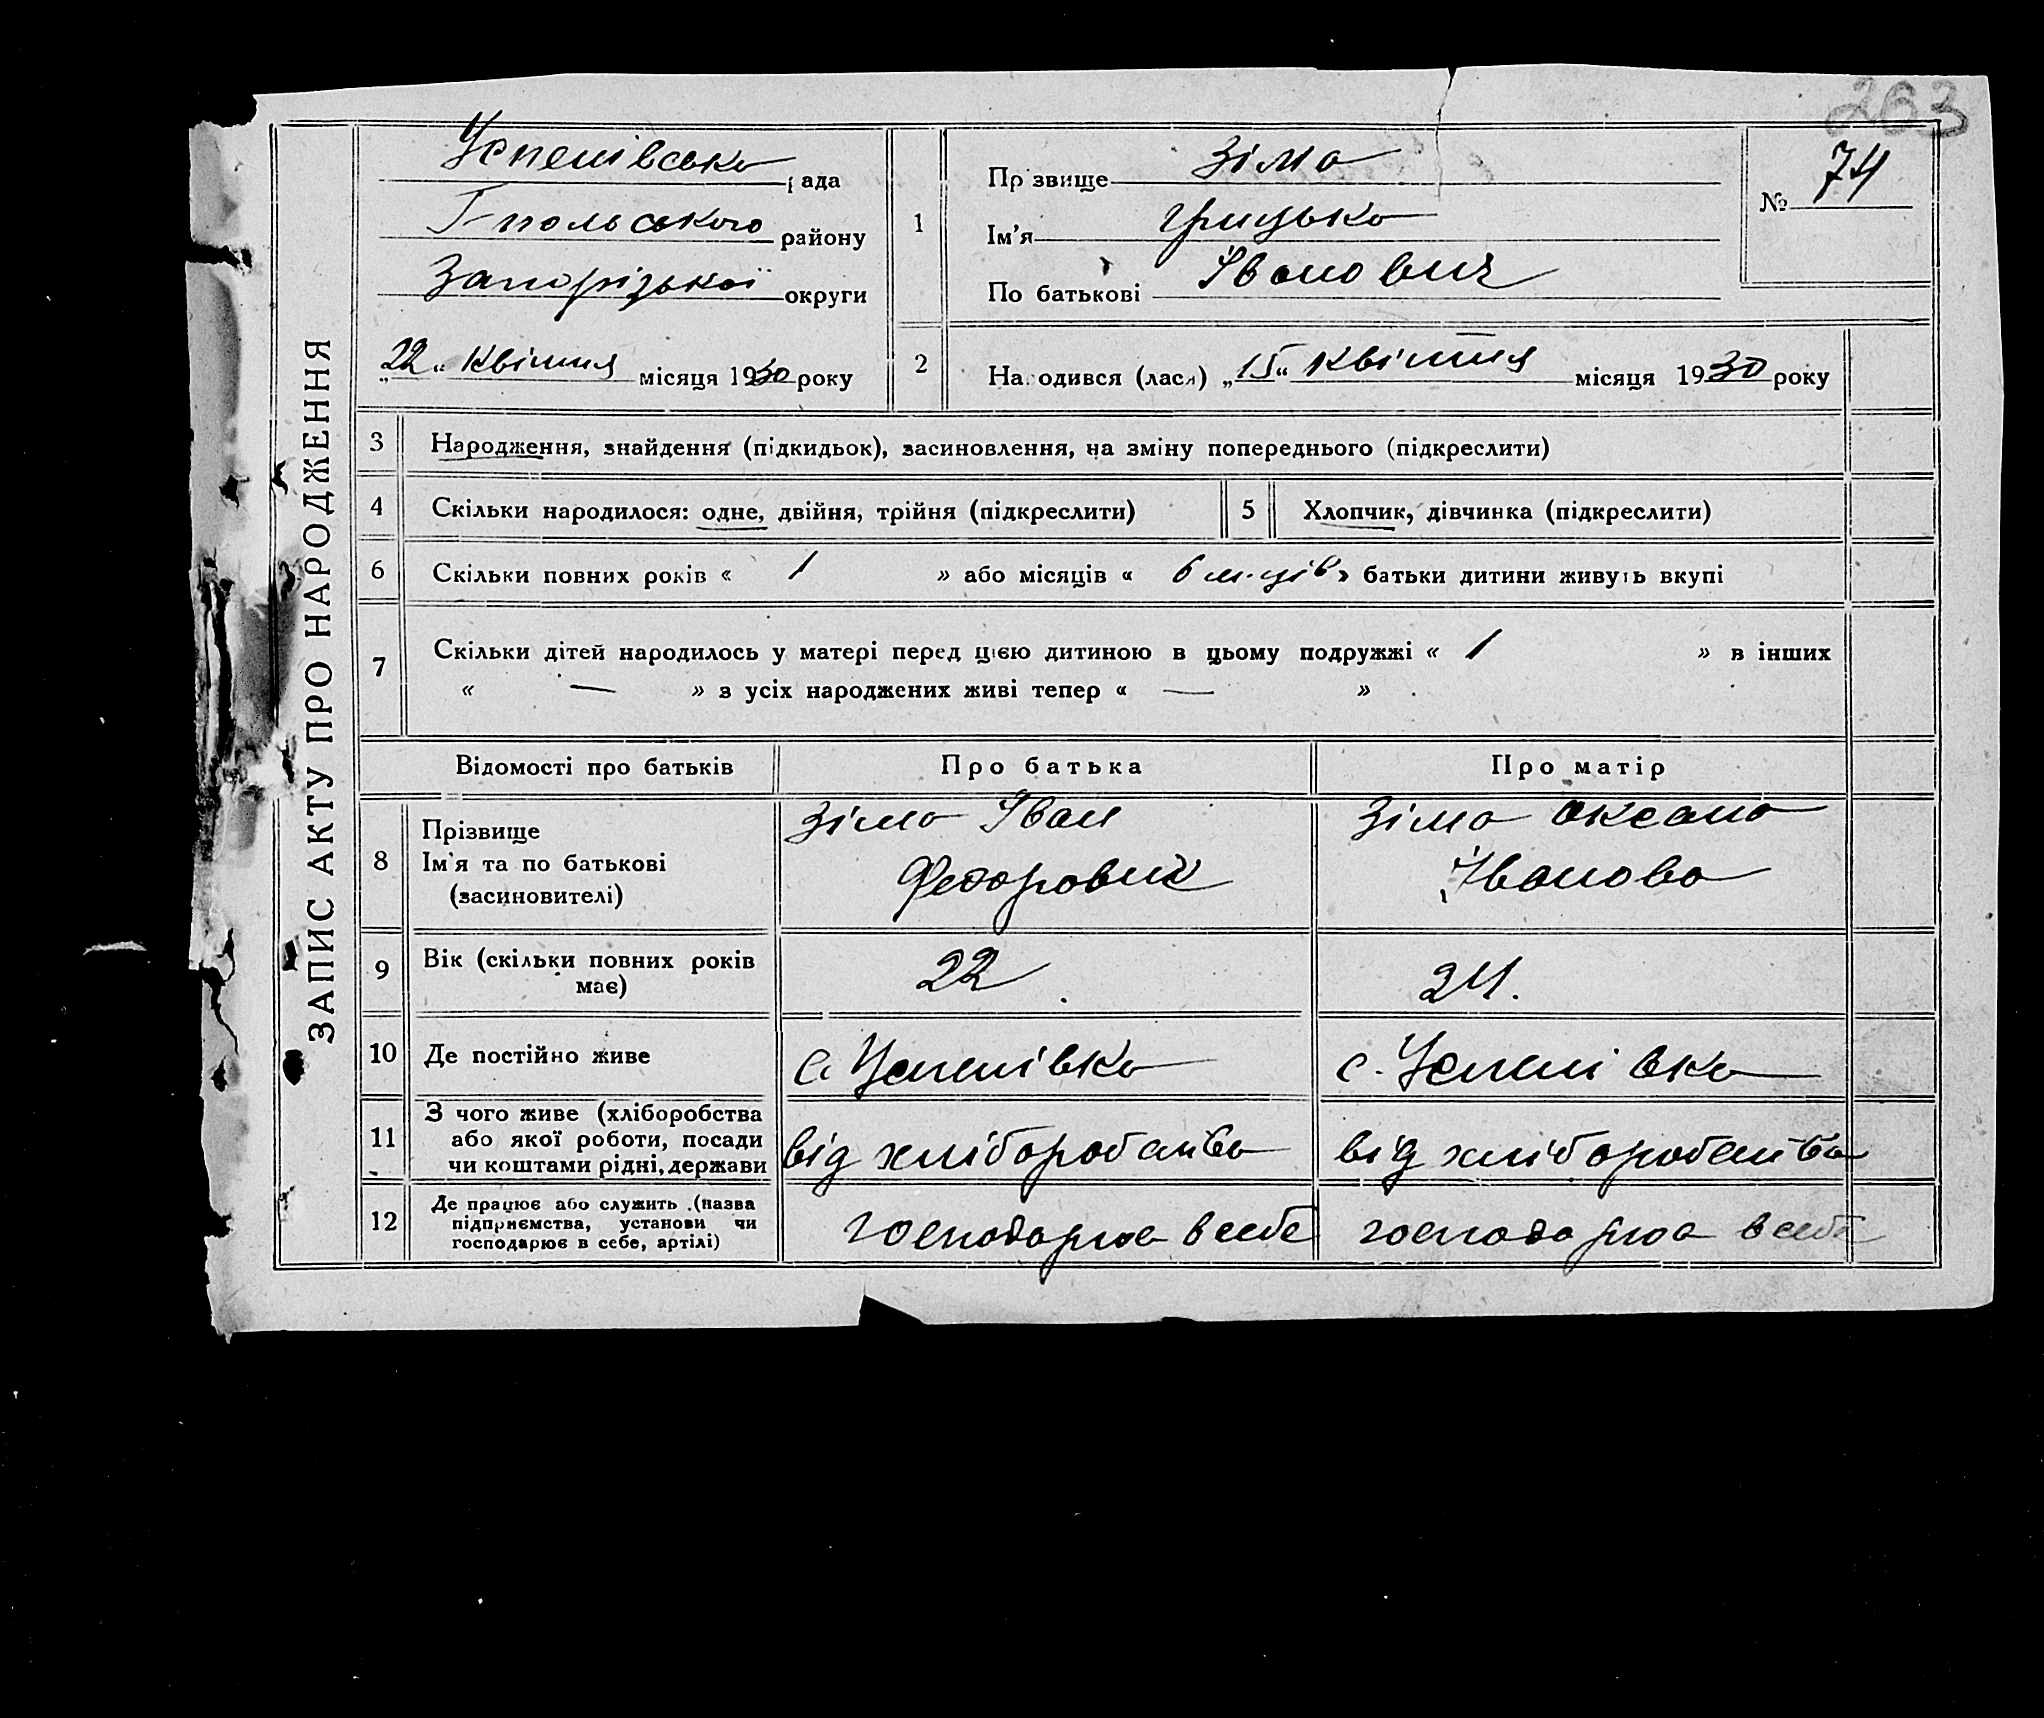 263
ЗАПИС АКТУ ПРО НАРОДЖЕННЯ
Успенівсько рада
Г-польського району
Запорізької округи
„22“ Квітня місяця 1930 року
1
Прізвище Зіма
Ім'я Грицько
По батькові Іванович
№ 74
2
Народився (лася) „15“ Квітня місяця 1930 року
3 Народження, знайдення (підкидьок), засиновлення, на зміну попереднього (підкреслити)
4 Скільки народилося: одне, двійня, трійня (підкреслити)
5 Хлопчик, дівчинка (підкреслити)
6 Скільки повних років « 1 » або місяців « 6 м-ців » батьки дитини живуть вкупі
7 Скільки дітей народилось у матері перед цією дитиною в цьому подружжі « 1 » в інших
« — » з усіх народжених живі тепер « — »
Відомості про батьків Про батька Про матір
8
Прізвище
Ім'я та по батькові
(засиновителі)
Зіма Іван
Федорович
Зіма Оксана
Іванова
9
Вік (скільки повних років
має)
22
24.
10 Де постійно живе
с. Успенівка
с. Успенівка
11
З чого живе (хліборобства
або якої роботи, посади
чи коштами рідні, держави
від хліборобства
від хліборобства
12
Де працює або служить (назва
підприємства, установи чи
господарює в себе, артілі)
господарює в себе
господарює в себе